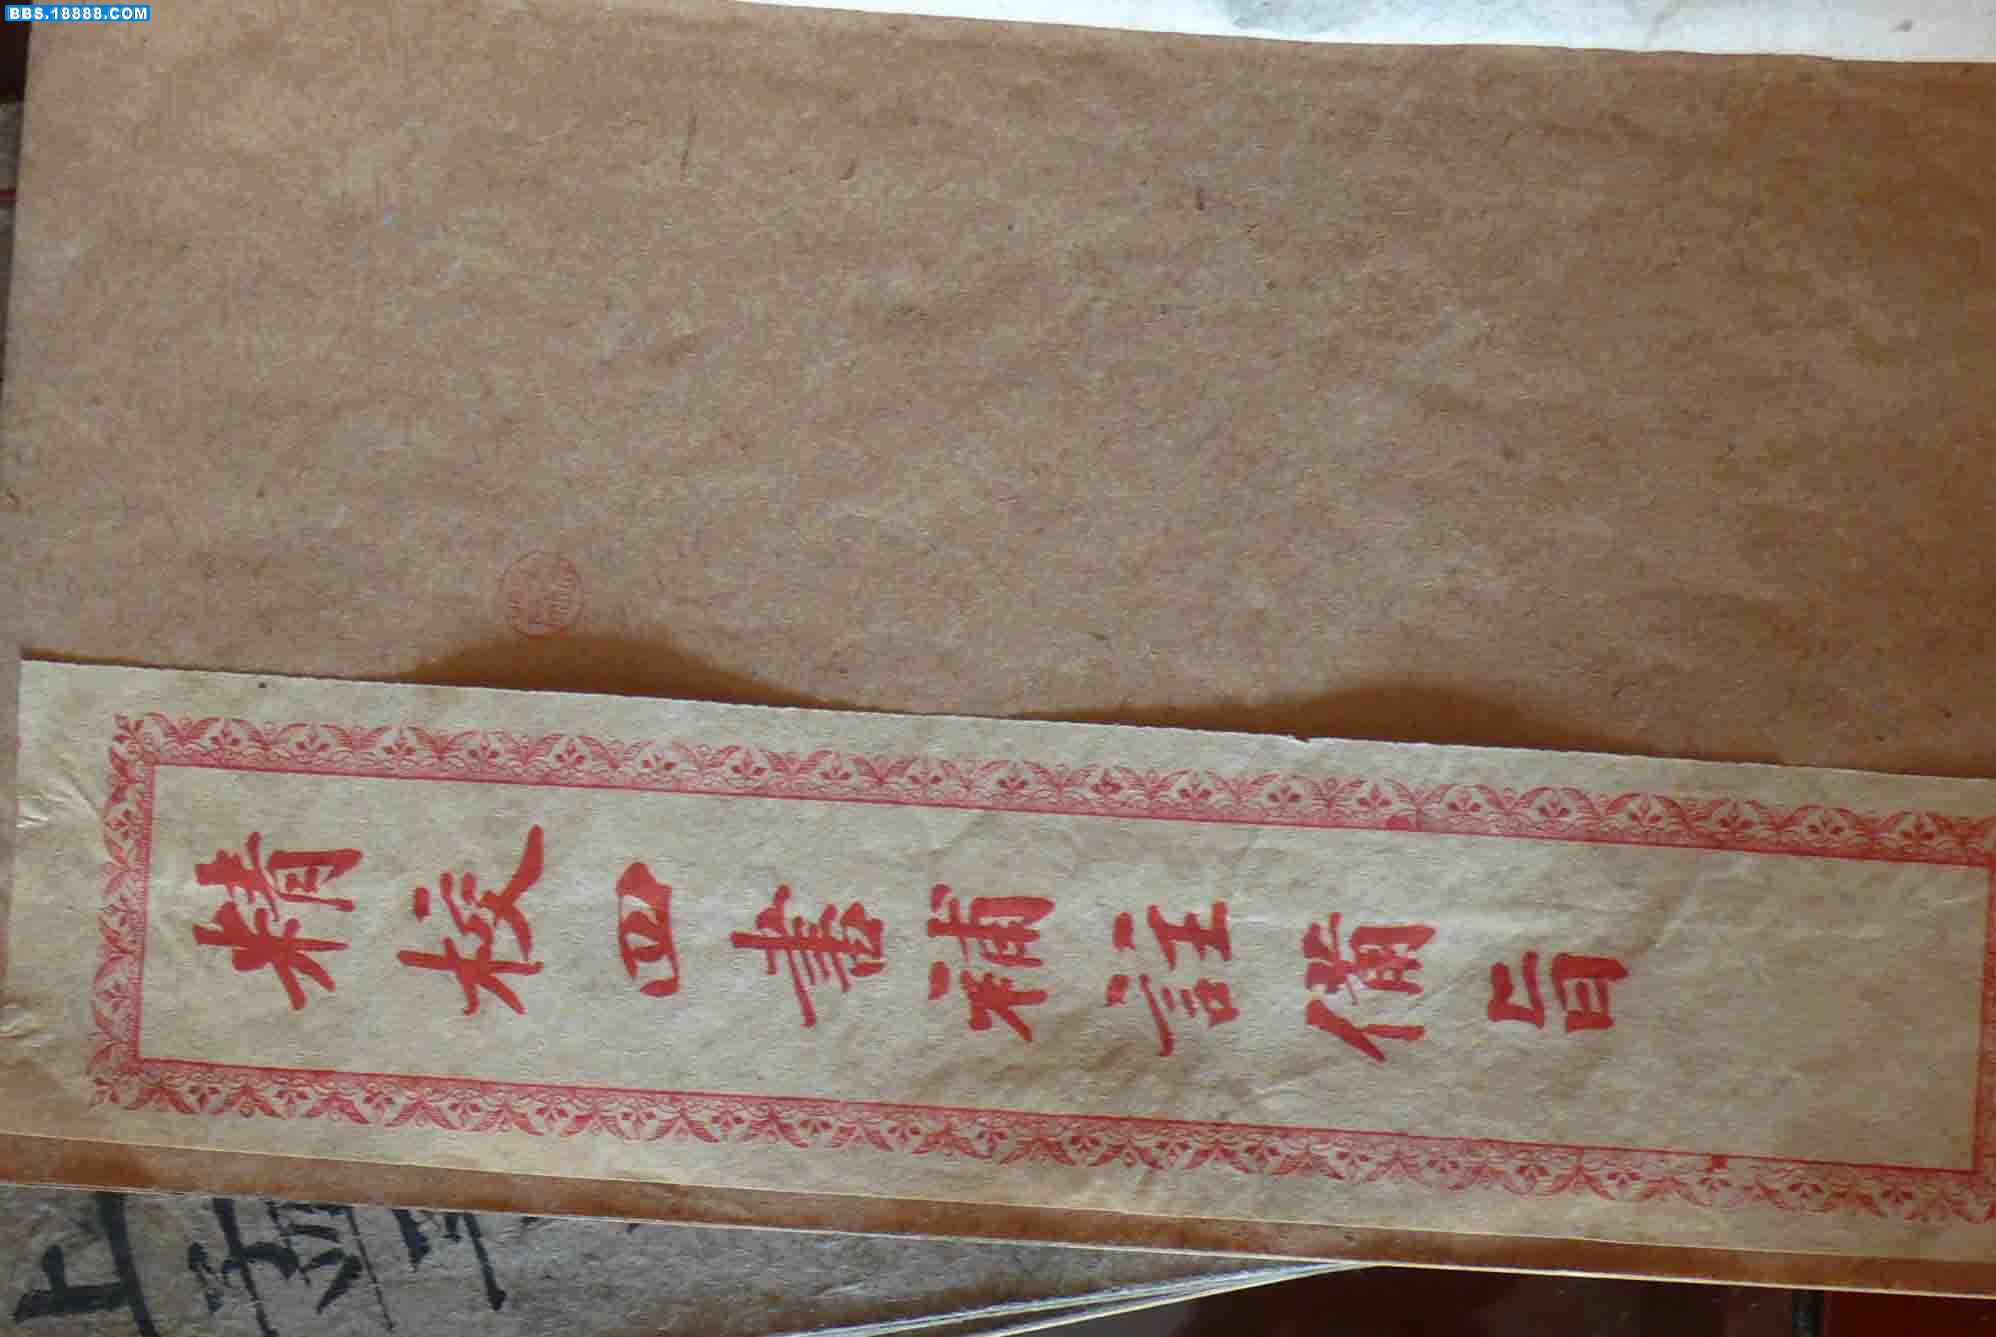 BBS.18888.COM
精校四書補註備旨
上